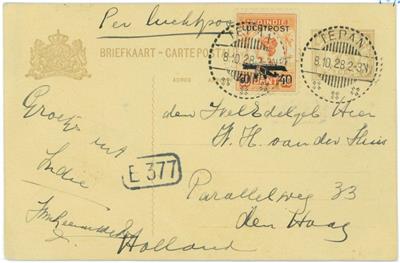 Per luchtpost
BRIEFKAART - CARTE POSTALE
ADRES
LUCHTPOST
40
TEPAN
8.10.28.2-3N
TEPAN
8.10.28.2-3N
Groeten uit
Indië
den WelEdelgeb Heer
W. H. van der Sluis
Parallelweg 33
den Haag
Holland
E 377